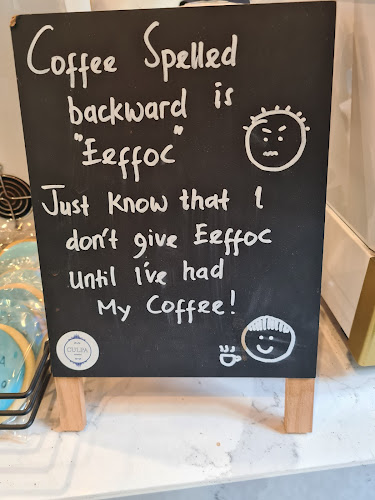 Coffee Spelled
backward is
"Eeffoc"
Just Know that I
don't give Eeffoc
until I've had
My Coffee!
CULPA